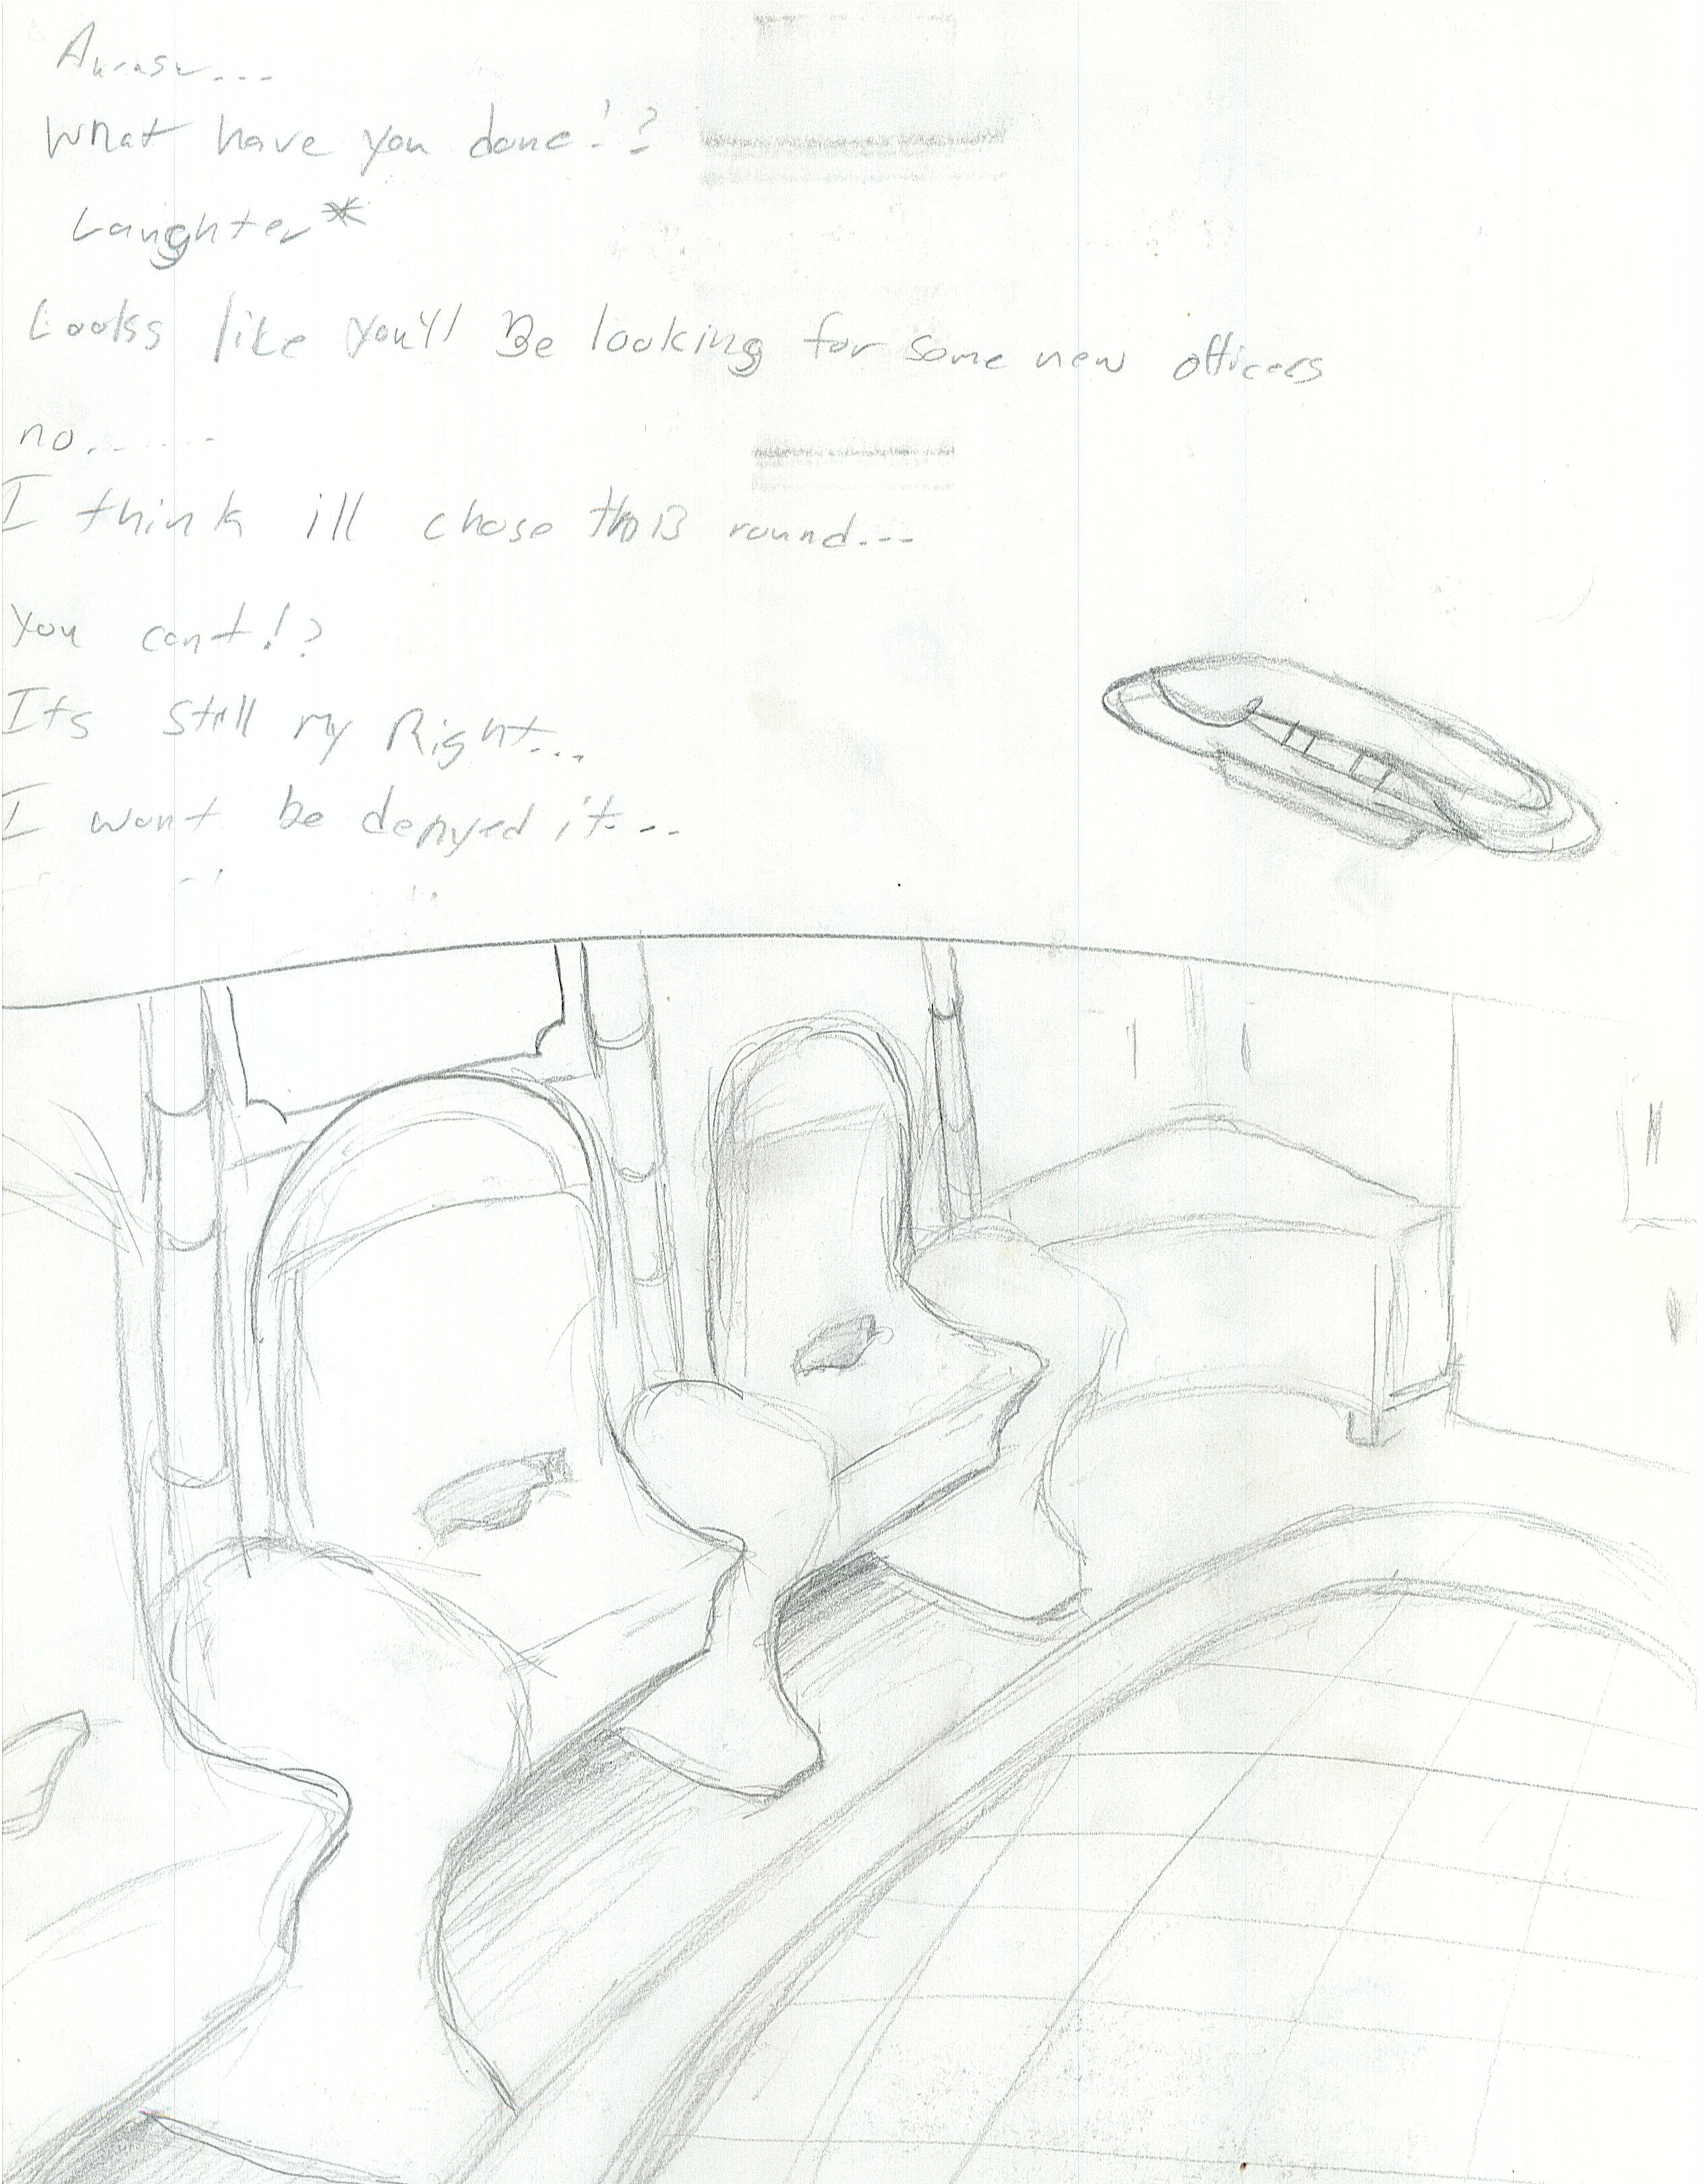 What have you done!?
Laughter*
Looks like you'll Be looking for some new officers
no.......
I think ill chose this round...
You cant!?
Its still my Right...
I wont be denyed it...